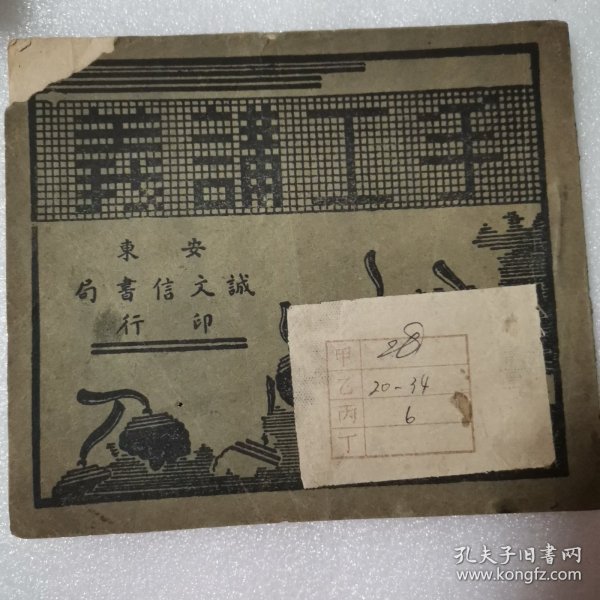 手工講義
安東
誠文信書局
印行
甲 28
乙 20-34
丙 6
丁
孔夫子旧书网
www.kongfz.com